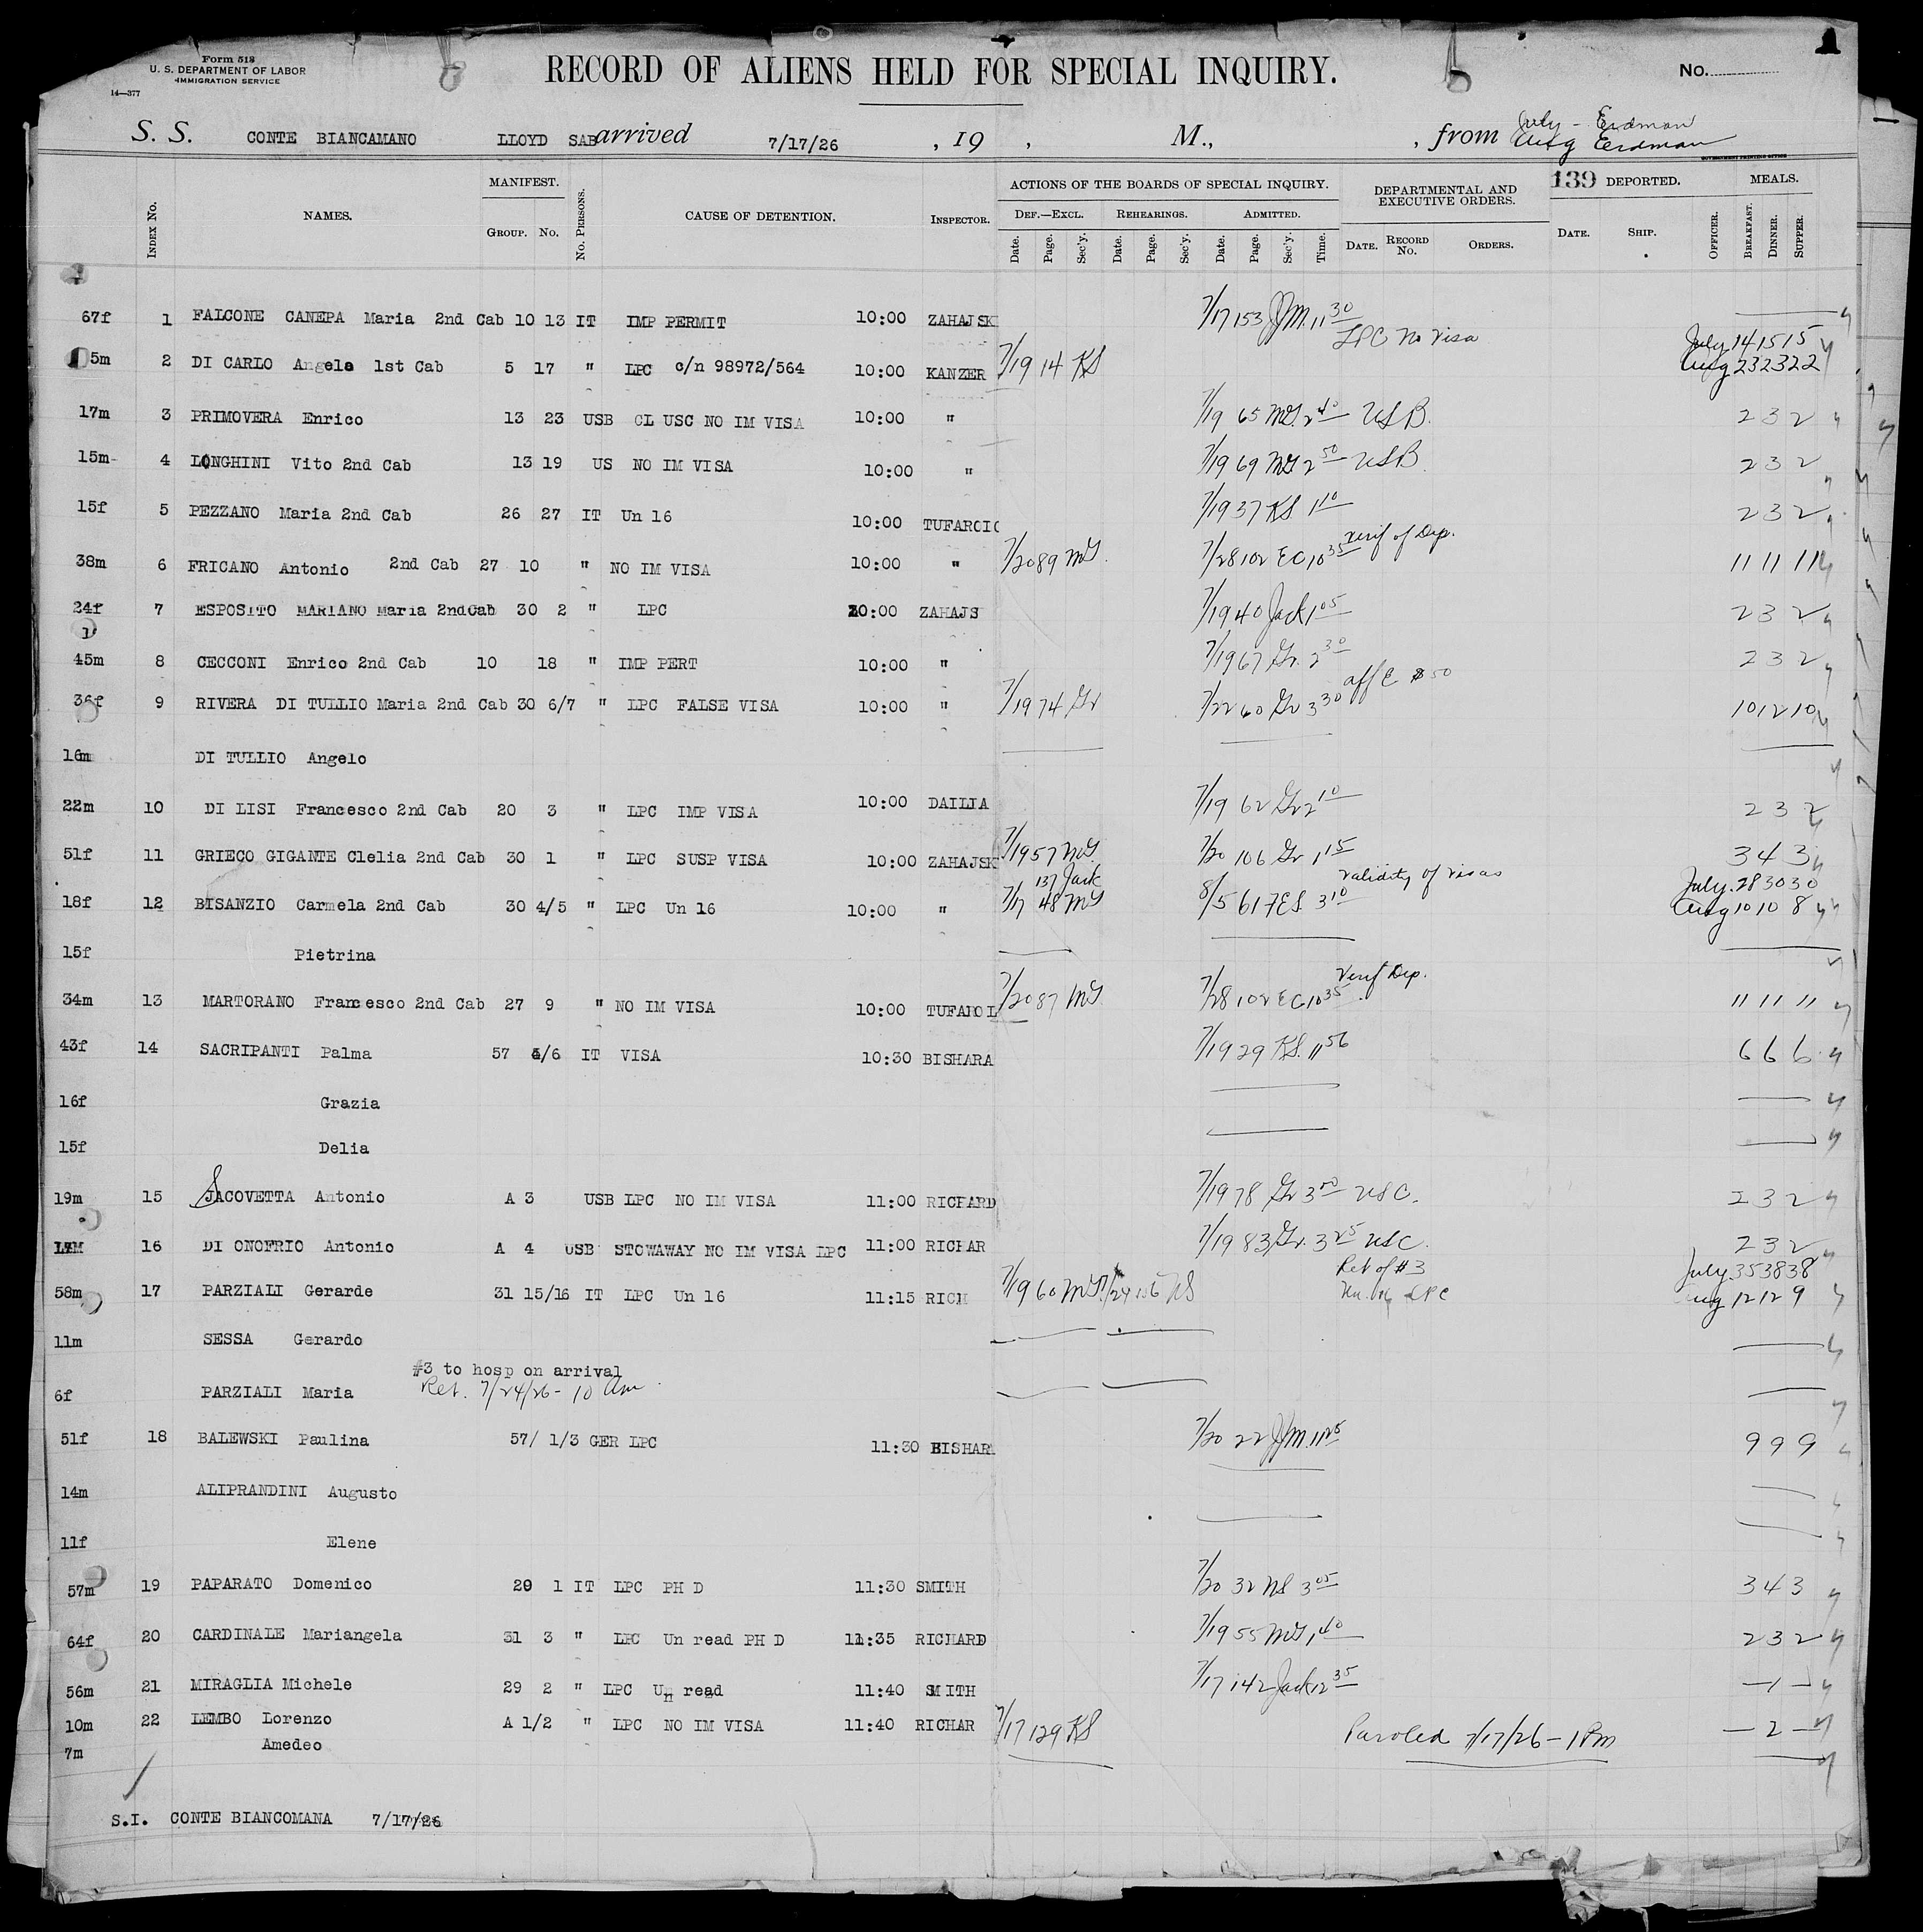 Form 518
U. S. DEPARTMENT OF LABOR
IMMIGRATION SERVICE
14—377
RECORD OF ALIENS HELD FOR SPECIAL INQUIRY.
No.
1
S. S. CONTE BIANCAMANO LLOYD SAB arrived 7/17/26 , 19 , M., , from July - Erdman
Aug Erdman
GOVERNMENT PRINTING OFFICE
INDEX No. NAMES. MANIFEST. GROUP. No. No. PERSONS. CAUSE OF DETENTION. INSPECTOR. ACTIONS OF THE BOARDS OF SPECIAL INQUIRY. DEF.—EXCL. REHEARINGS. ADMITTED. DEPARTMENTAL AND EXECUTIVE ORDERS. 139 DEPORTED. MEALS.
Date. Page. Sec'y. Date. Page. Sec'y. Date. Page. Sec'y. Time. DATE. RECORD No. ORDERS. DATE. SHIP. OFFICER. BREAKFAST. DINNER. SUPPER.
67f 1 FALCONE CANEPA Maria 2nd Cab 10 13 IT IMP PERMIT 10:00 ZAHAJSK 7/17 153 JJM. 11 30
LPC No Visa July 14 15 15
5m 2 DI CARLO Angelo 1st Cab 5 17 " LPC c/n 98972/564 10:00 KANZER 7/19 14 KS Aug 23 23 22
17m 3 PRIMOVERA Enrico 13 23 USB CL USC NO IM VISA 10:00 " 7/19 65 MG. 2 40 USB. 2 3 2
15m 4 LONGHINI Vito 2nd Cab 13 19 US NO IM VISA 10:00 " 7/19 69 MG 2 50 USB. 2 3 2
15f 5 PEZZANO Maria 2nd Cab 26 27 IT Un 16 10:00 TUFAROIO 7/19 37 KS 1 10 2 3 2
verif of Dep.
38m 6 FRICANO Antonio 2nd Cab 27 10 " NO IM VISA 10:00 " 7/20 89 MG. 7/28 102 EC 10 35 11 11 11
24f 7 ESPOSITO MARIANO Maria 2ndCab 30 2 " LPC 10:00 ZAHAJS 7/19 40 Jack 1 05 2 3 2
45m 8 CECCONI Enrico 2nd Cab 10 18 " IMP PERT 10:00 " 7/19 67 Gr. 2 30 2 3 2
aff E $50
36f 9 RIVERA DI TULLIO Maria 2nd Cab 30 6/7 " LPC FALSE VISA 10:00 " 7/19 74 Gr 7/22 60 Gr 3 30 10 12 10
16m DI TULLIO Angelo
22m 10 DI LISI Francesco 2nd Cab 20 3 " LPC IMP VISA 10:00 DAILIA 7/19 62 Gr 2 10 2 3 2
51f 11 GRIECO GIGANTE Clelia 2nd Cab 30 1 " LPC SUSP VISA 10:00 ZAHAJSK 7/19 57 MG. 7/20 106 Gr 1 15 3 4 3
137 Jack validity of visas July. 28 30 30
18f 12 BISANZIO Carmela 2nd Cab 30 4/5 " LPC Un 16 10:00 " 7/17 48 MG 8/5 61 FES 3 10 Aug 10 10 8
15f Pietrina
Verif Dep.
34m 13 MARTORANO Francesco 2nd Cab 27 9 " NO IM VISA 10:00 TUFAROL 7/20 87 MG. 7/28 102 EC 10 35 11 11 11
43f 14 SACRIPANTI Palma 57 4/6 IT VISA 10:30 BISHARA 7/19 29 KS. 11 56 6 6 6
16f Grazia
15f Delia
19m 15 JACOVETTA Antonio A 3 USB LPC NO IM VISA 11:00 RICHARD 7/19 78 Gr 3 00 USC. 2 3 2
17M 16 DI ONOFRIO Antonio A 4 USB STOWAWAY NO IM VISA LPC 11:00 RICHAR 7/19 83 Gr. 3 25 USC. 2 3 2
Ret of #3 July 35 38 38
58m 17 PARZIALI Gerarde 31 15/16 IT LPC Un 16 11:15 RICH 7/19 60 MG. 7/24 LPC Aug 12 12 9
11m SESSA Gerardo
#3 to hosp on arrival
6f PARZIALI Maria Ret. 7/24/26 - 10 Am
51f 18 BALEWSKI Paulina 57/ 1/3 GER LPC 11:30 BISHAR 7/20 22 JJM. 11 25 9 9 9
14m ALIPRANDINI Augusto
11f Elene
57m 19 PAPARATO Domenico 29 1 IT LPC PH D 11:30 SMITH 7/20 32 NS 3 05 3 4 3
64f 20 CARDINALE Mariangela 31 3 " LPC Un read PH D 11:35 RICHARD 7/19 55 MG 1 40 2 3 2
56m 21 MIRAGLIA Michele 29 2 " LPC Un read 11:40 SMITH 7/17 142 Jack 12 35 — 1 —
10m 22 LEMBO Lorenzo A 1/2 " LPC NO IM VISA 11:40 RICHAR 7/17 129 KS Paroled 7/17/26 - 1 Pm — 2 —
7m Amedeo
S.I. CONTE BIANCOMANA 7/17/26